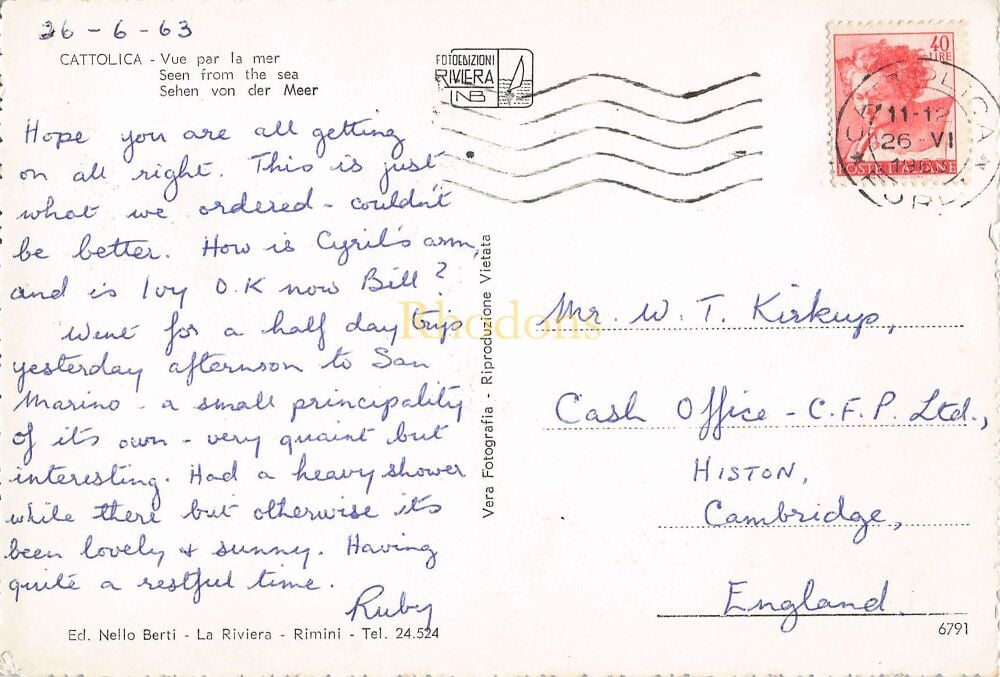 26-6-63
CATTOLICA - Vue par la mer
Seen from the sea
Sehen von der Meer
Hope you are all getting
on all right. This is just
what we ordered - couldn't
be better. How is Cyril's arm,
and is Ivy O.K now Bill?
Went for a half day trip
yesterday afternoon to San
Marino - a small principality
of it's own - very quaint but
interesting. Had a heavy shower
while there but otherwise it's
been lovely & sunny. Having
quite a restful time.
Ruby
Ed. Nello Berti - La Riviera - Rimini - Tel. 24.524
FOTOEDIZIONI
RIVIERA
Vera Fotografia - Riproduzione Vietata
Rhodons
40
LIRE
POSTE ITALIANE
CATTOLICA
11-12
26-VI
Mr. W. T. Kirkup,
Cash Office - C.F.P. Ltd.,
HISTON,
Cambridge,
England.
6791